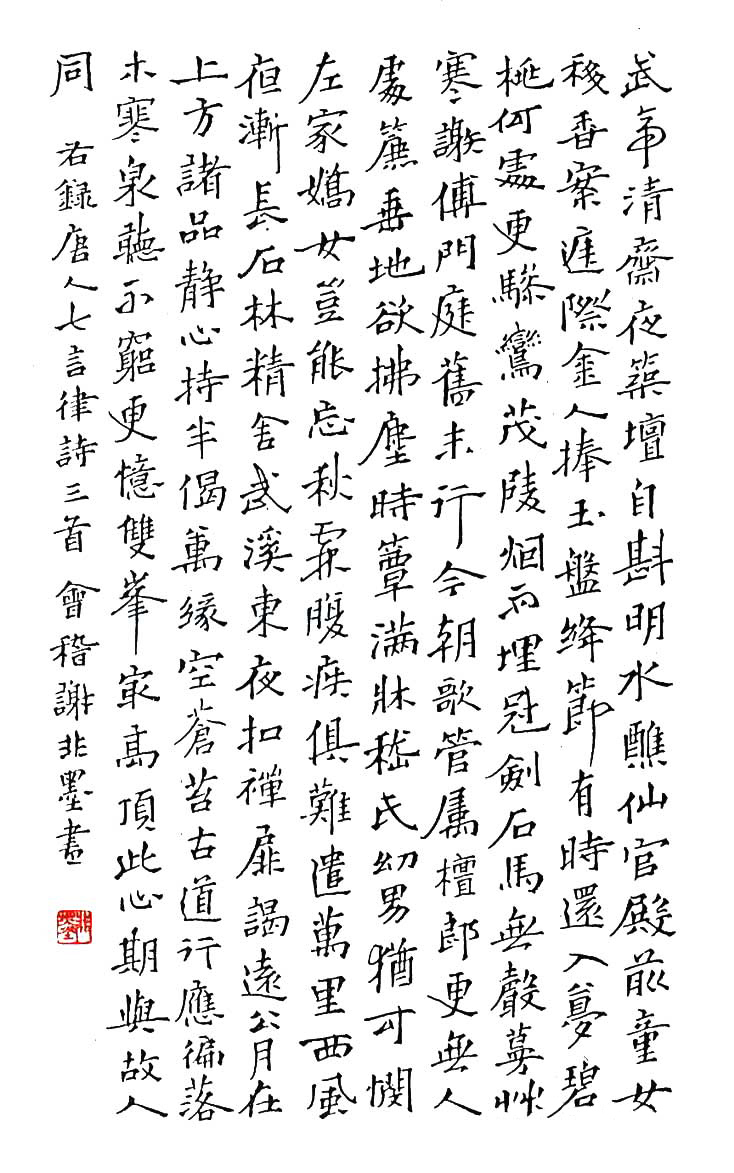 武帝清齋夜築壇自斟明水醮仙官殿前童女
移香案際金人捧玉盤絳節有時還入夢碧
桃何處更驂鸞茂陵烟雨埋冠劍石馬無聲蔓草
寒謝傅門庭舊末行今朝歌管屬檀郎更無人
處簾垂地欲拂塵時簟滿牀嵇氏幼男猶可憫
左家嬌女豈能忘秋霖腹疾俱難遣萬里西風
夜漸長石林精舍武溪東夜扣禪扉謁遠公月在
上方諸品靜心持半偈萬緣空蒼苔古道行應徧落
木寒泉聽不窮更憶雙峯最高頂此心期與故人
同 右錄唐人七言律詩三首 會稽謝非墨畫